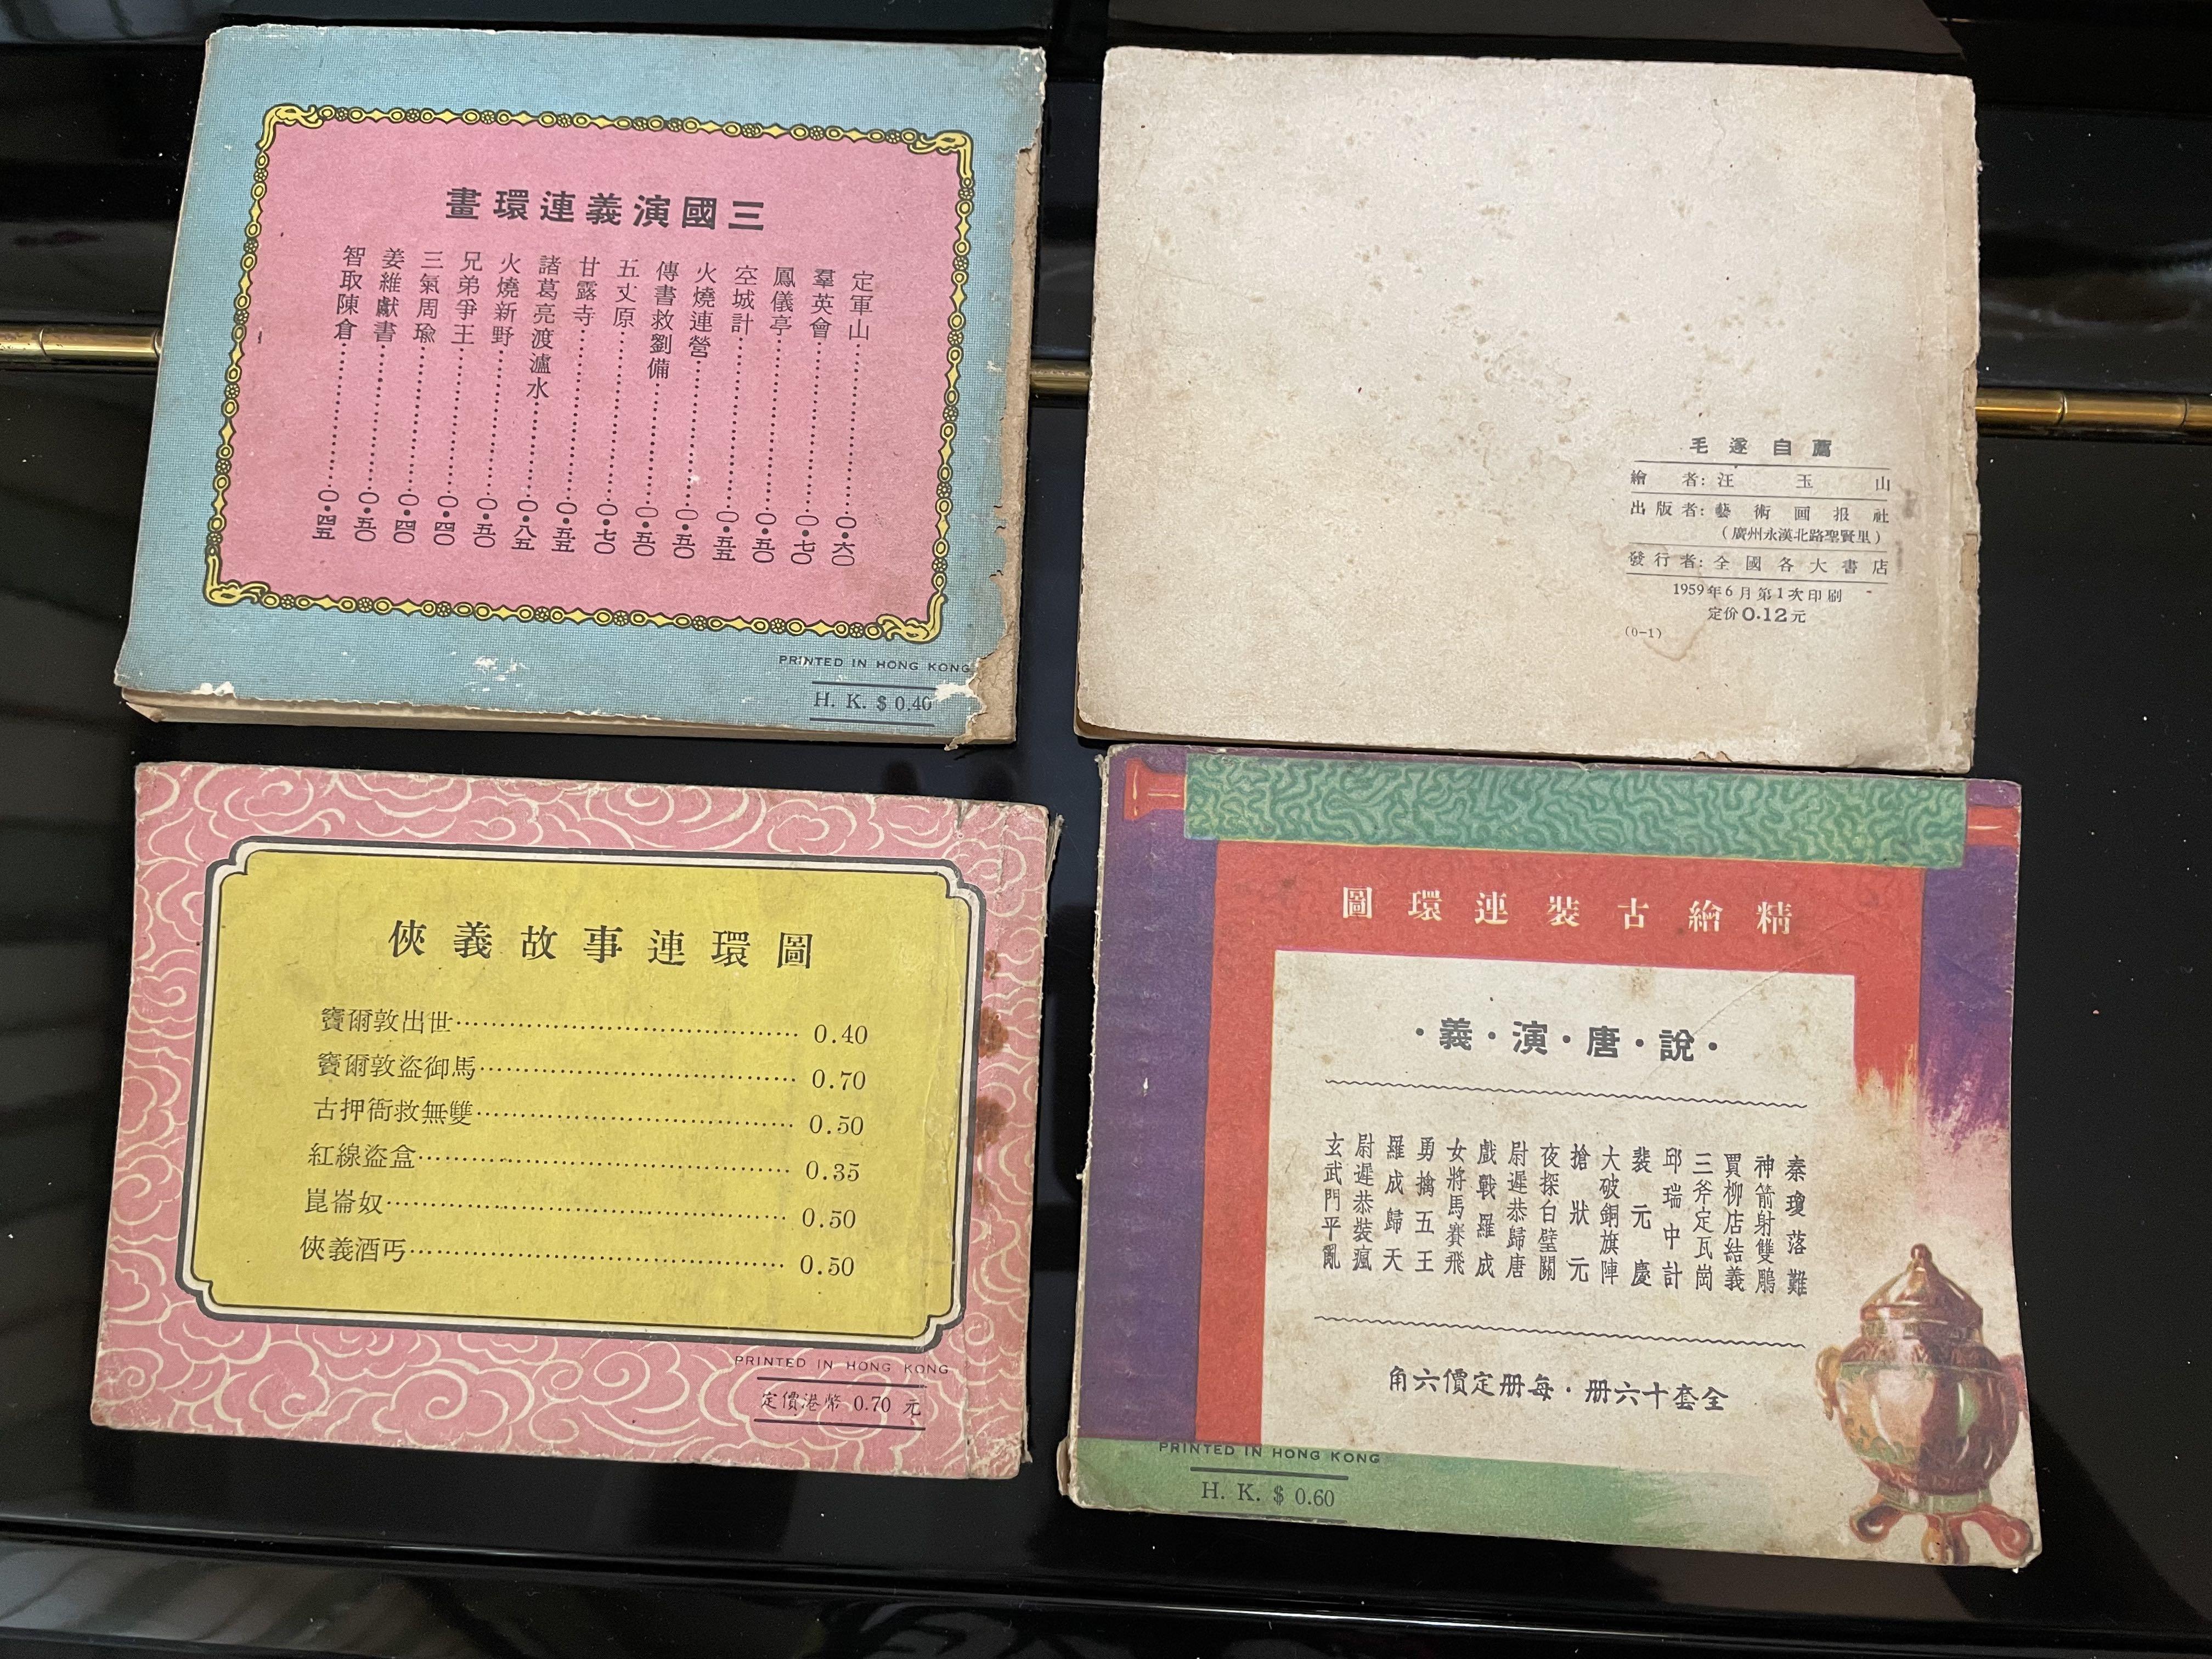 三國演義連環畫
定軍山 0.六0
羣英會 0.七0
鳳儀亭 0.五0
空城計 0.五五
火燒連營 0.五0
傳書救劉備 0.五0
五丈原 0.七0
甘露寺 0.五五
諸葛亮渡瀘水 0.八五
火燒新野 0.五0
兄弟爭王 0.四0
三氣周瑜 0.四0
姜維獻書 0.五0
智取陳倉 0.四五
PRINTED IN HONG KONG
H. K. $ 0.40
毛遂自薦
繪者：汪玉山
出版者：藝術画报社
（廣州永漢北路聖賢里）
發行者：全國各大書店
1959年6月第1次印刷
定价0.12元
(0-1)
俠義故事連環圖
竇爾敦出世 0.40
竇爾敦盜御馬 0.70
古押衙救無雙 0.50
紅線盜盒 0.35
崑崙奴 0.50
俠義酒丐 0.50
PRINTED IN HONG KONG
定價港幣 0.70 元
精繪古裝連環圖
·說·唐·演·義·
秦瓊落難
神箭射雙鵰
賈柳店結義
三斧定瓦崗
邱瑞中計
裴元慶
大破銅旗陣
搶狀元
夜探白壁關
尉遲恭歸唐
戲戰羅成
女將馬賽飛
勇擒五王
羅成歸天
尉遲恭裝瘋
玄武門平亂
全套十六册·每册定價六角
PRINTED IN HONG KONG
H. K. $ 0.60